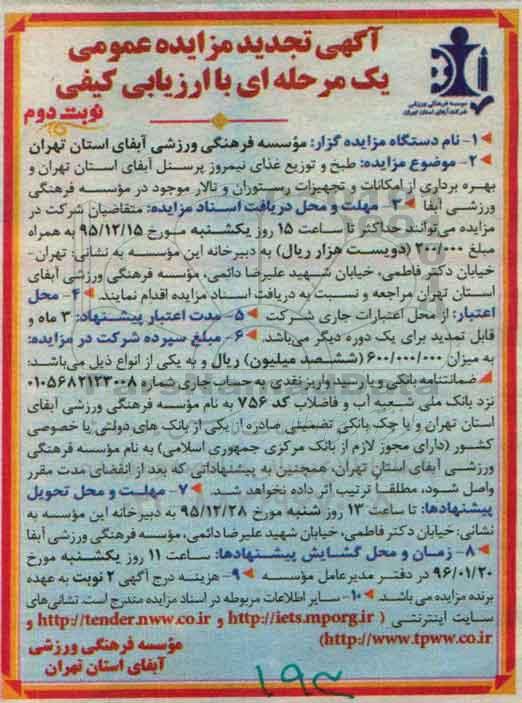 آگهی تجدید مزایده عمومی
یک مرحله ای با ارزیابی کیفی
نوبت دوم
موسسه فرهنگی ورزشی
شرکت آبفای استان تهران
۱- نام دستگاه مزایده گزار: مؤسسه فرهنگی ورزشی آبفای استان تهران
۲- موضوع مزایده: طبخ و توزیع غذای نیمروز پرسنل آبفای استان تهران و
بهره برداری از امکانات و تجهیزات رستوران و تالار موجود در مؤسسه فرهنگی
ورزشی آبفا ۳- مهلت و محل دریافت اسناد مزایده: متقاضیان شرکت در
مزایده می‌توانند حداکثر تا ساعت ۱۵ روز یکشنبه مورخ ۹۵/۱۲/۱۵ به همراه
مبلغ ۲۰۰/۰۰۰ (دویست هزار ریال) به دبیرخانه این مؤسسه به نشانی: تهران-
خیابان دکتر فاطمی، خیابان شهید علیرضا دائمی، مؤسسه فرهنگی ورزشی آبفای
استان تهران مراجعه و نسبت به دریافت اسناد مزایده اقدام نمایند. ۴- محل
اعتبار: از محل اعتبارات جاری شرکت ۵- مدت اعتبار پیشنهاد: ۳ ماه و
قابل تمدید برای یک دوره دیگر می‌باشد. ۶- مبلغ سپرده شرکت در مزایده:
به میزان ۶۰۰/۰۰۰/۰۰۰ (ششصد میلیون) ریال و به یکی از انواع ذیل می‌باشد:
ضمانتنامه بانکی و یا رسید واریز نقدی به حساب جاری شماره ۰۱۰۵۶۸۲۱۲۳۰۰۸
نزد بانک ملی شعبه آب و فاضلاب کد ۷۵۶ به نام مؤسسه فرهنگی ورزشی آبفای
استان تهران و یا چک بانکی تضمینی صادره از یکی از بانک های دولتی یا خصوصی
کشور (دارای مجوز لازم از بانک مرکزی جمهوری اسلامی) به نام مؤسسه فرهنگی
ورزشی آبفای استان تهران، همچنین به پیشنهاداتی که بعد از انقضای مدت مقرر
واصل شود، مطلقا ترتیب اثر داده نخواهد شد. ۷- مهلت و محل تحویل
پیشنهادها: تا ساعت ۱۳ روز شنبه مورخ ۹۵/۱۲/۲۸ به دبیرخانه این مؤسسه به
نشانی: خیابان دکتر فاطمی، خیابان شهید علیرضا دائمی، مؤسسه فرهنگی ورزشی آبفا
۸- زمان و محل گشایش پیشنهادها: ساعت ۱۱ روز یکشنبه مورخ
۹۶/۰۱/۲۰ در دفتر مدیرعامل مؤسسه ۹- هزینه درج آگهی ۲ نوبت به عهده
برنده مزایده می باشد. ۱۰- سایر اطلاعات مربوطه در اسناد مزایده مندرج است. نشانی‌های
سایت اینترنتی ( http://iets.mporg.ir و http://tender.nww.co.ir و
http://www.tpww.co.ir)
مؤسسه فرهنگی ورزشی
آبفای استان تهران